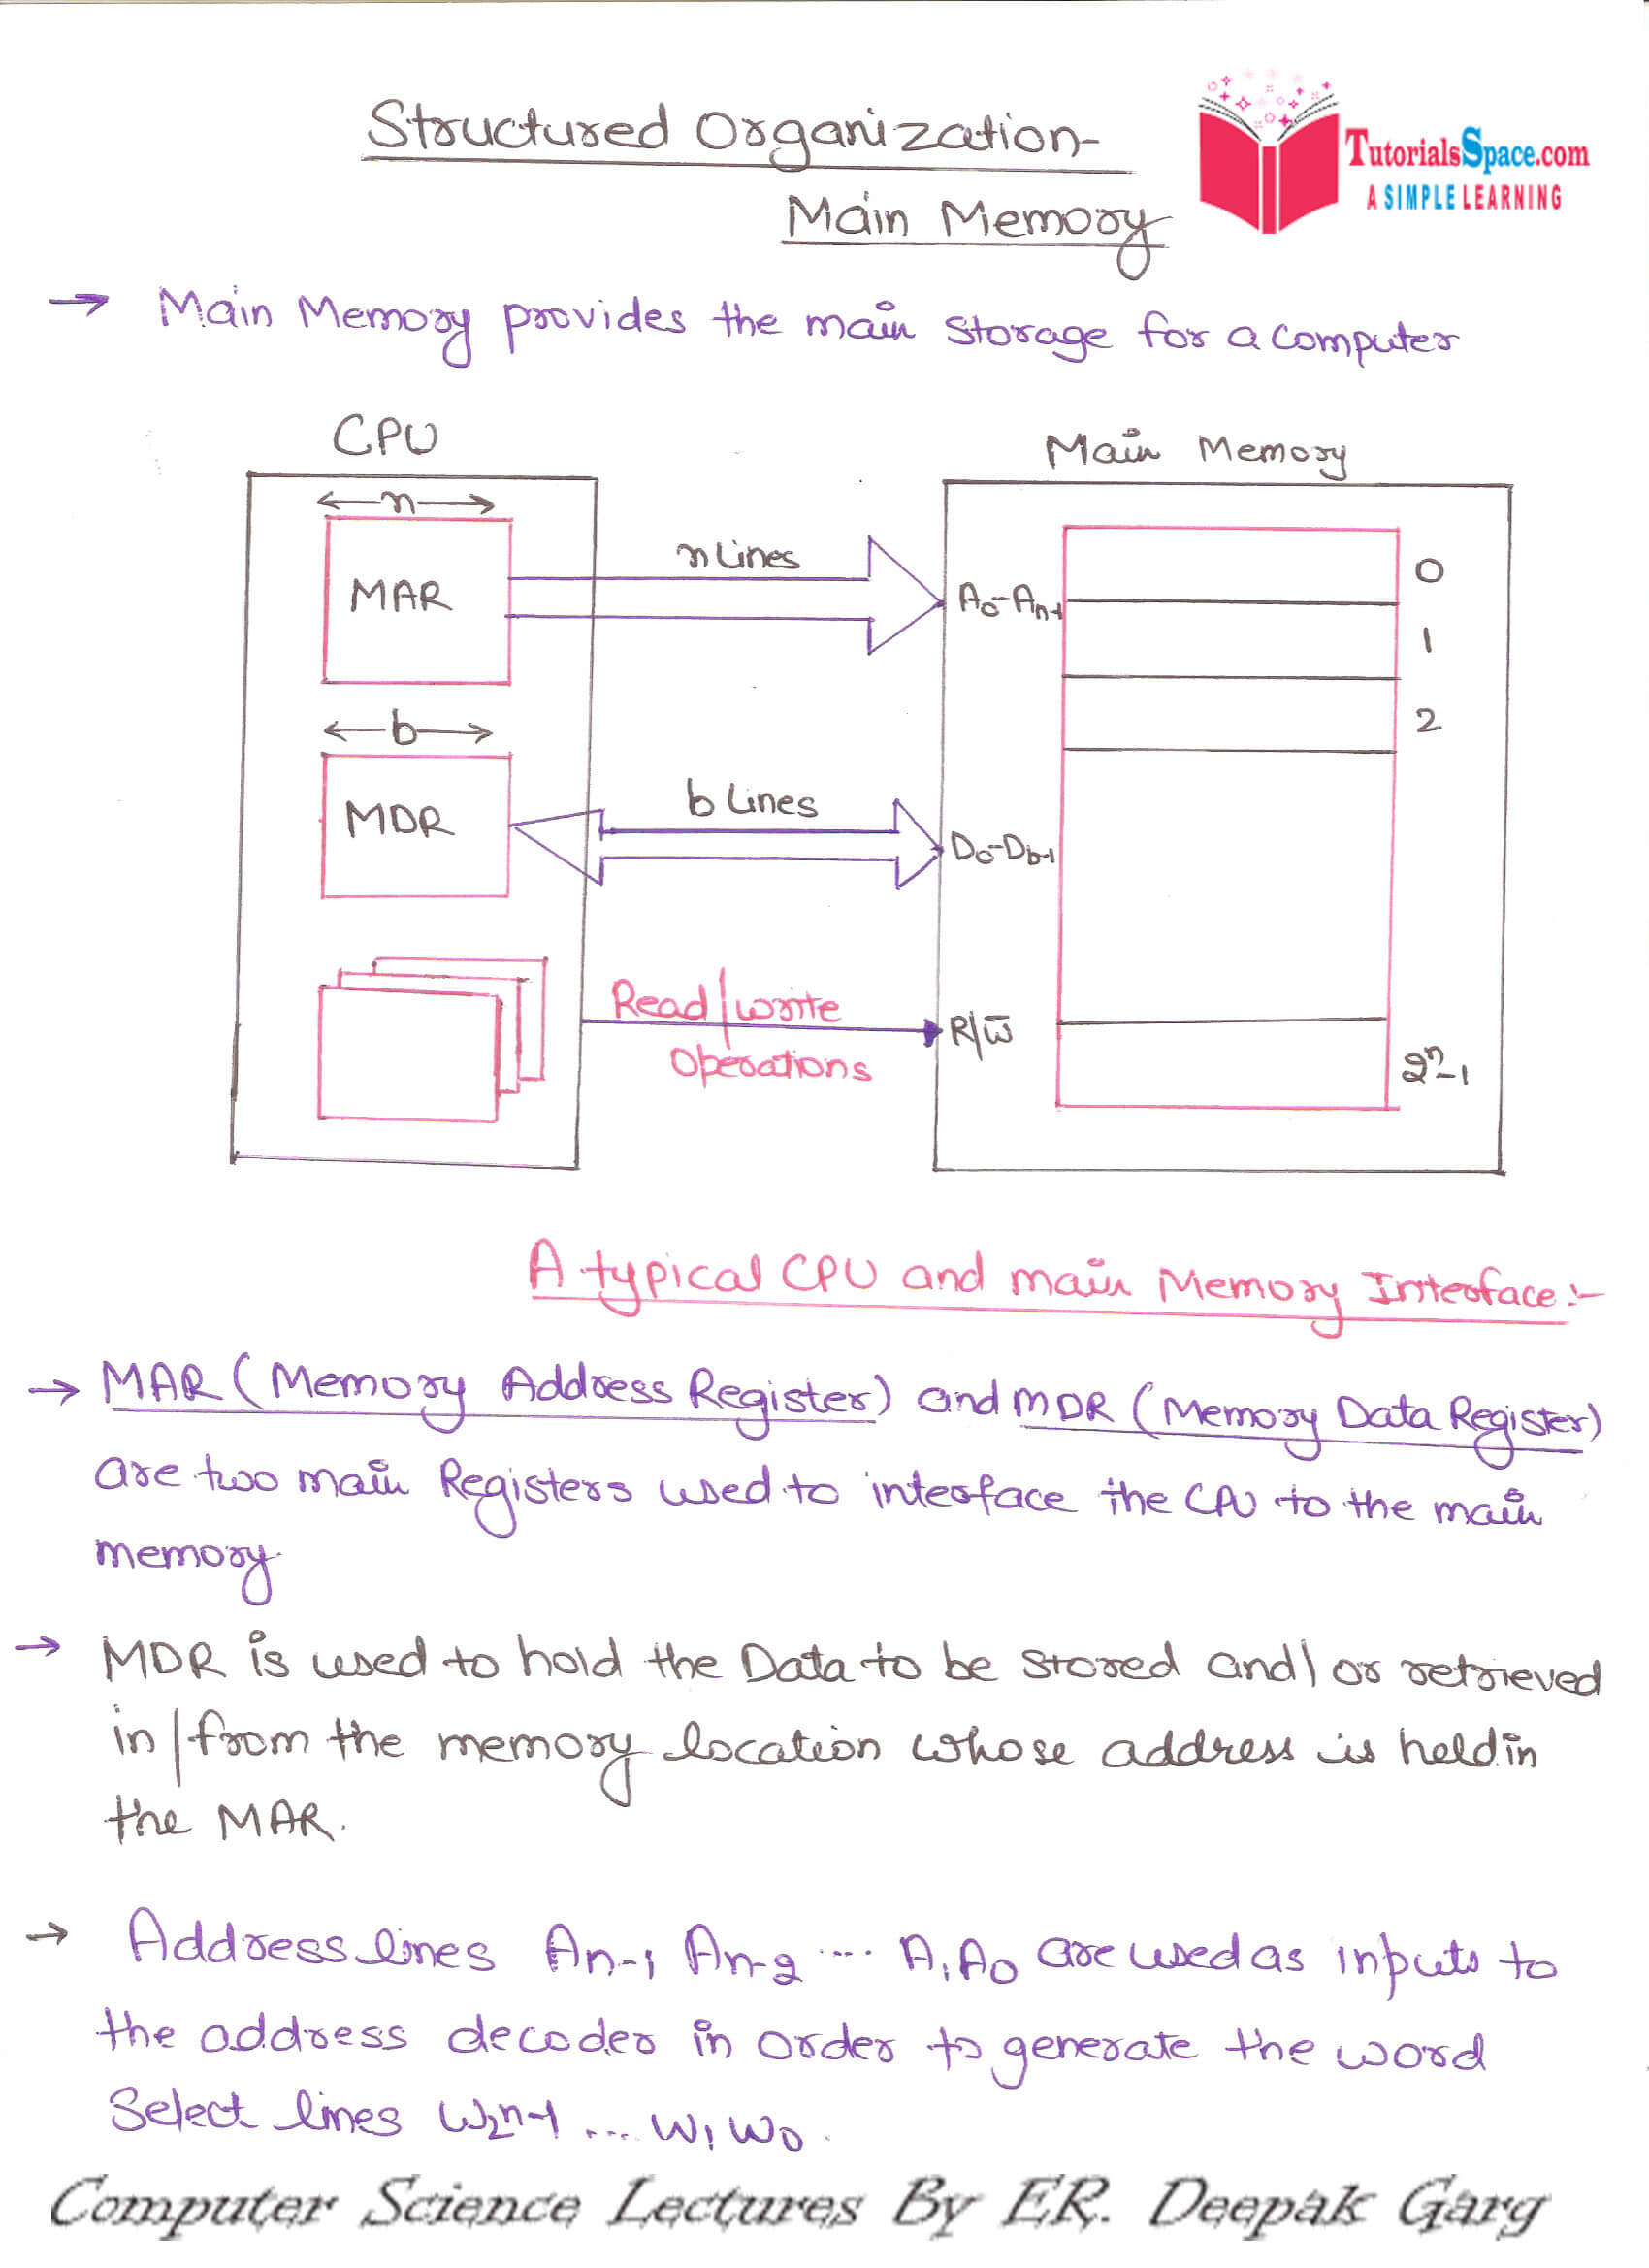 Structured Organization-
Main Memory
TutorialsSpace.com
A SIMPLE LEARNING
→ Main Memory provides the main storage for a computer
CPU
Main Memory
←n→
MAR
n Lines
A₀-Aₙ₋₁
0
1
2
←b→
MDR
b Lines
D₀-D_b-1
Read/write
Operations
R/w̅
2ⁿ-1
A typical CPU and main Memory Interface:-
→ MAR (Memory Address Register) and MDR (Memory Data Register)
are two main Registers used to interface the CPU to the main
memory.
→ MDR is used to hold the Data to be stored and/or retrieved
in/from the memory location whose address is held in
the MAR.
→ Address lines Aₙ₋₁ Aₙ₋₂ ... A₁A₀ are used as inputs to
the address decoder in order to generate the word
Select lines w₂ⁿ-1 .... w₁ w₀.
Computer Science Lectures By ER. Deepak Garg